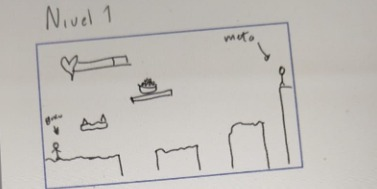 Nivel 1
meta